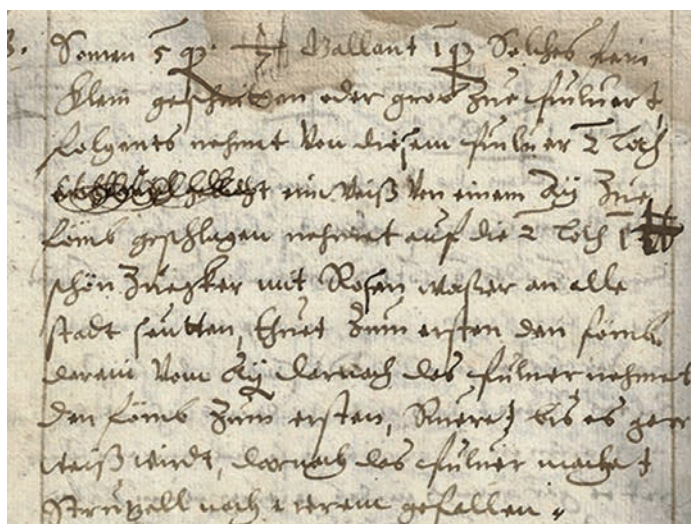 Somen 5 qu. Gallant 1 qu Solches sein
klein geschnitten oder grob Zue Puluer
folgents nehmt von diesem Puluer 2 loth
ein Weiß von einem Aÿ Zue
faimb geschlagen nehmet auf die 2 loth 1
schön Zuckher mit Rosen wasser an alle
stadt seutten, thuet Zum ersten den faimb
darein vom Aÿ darnach das Puluer nehmet
den faimb Zum ersten, Rueret bis es gar
weiß wirdt, darnach das Puluer machet
Strützell nach eurem gefallen